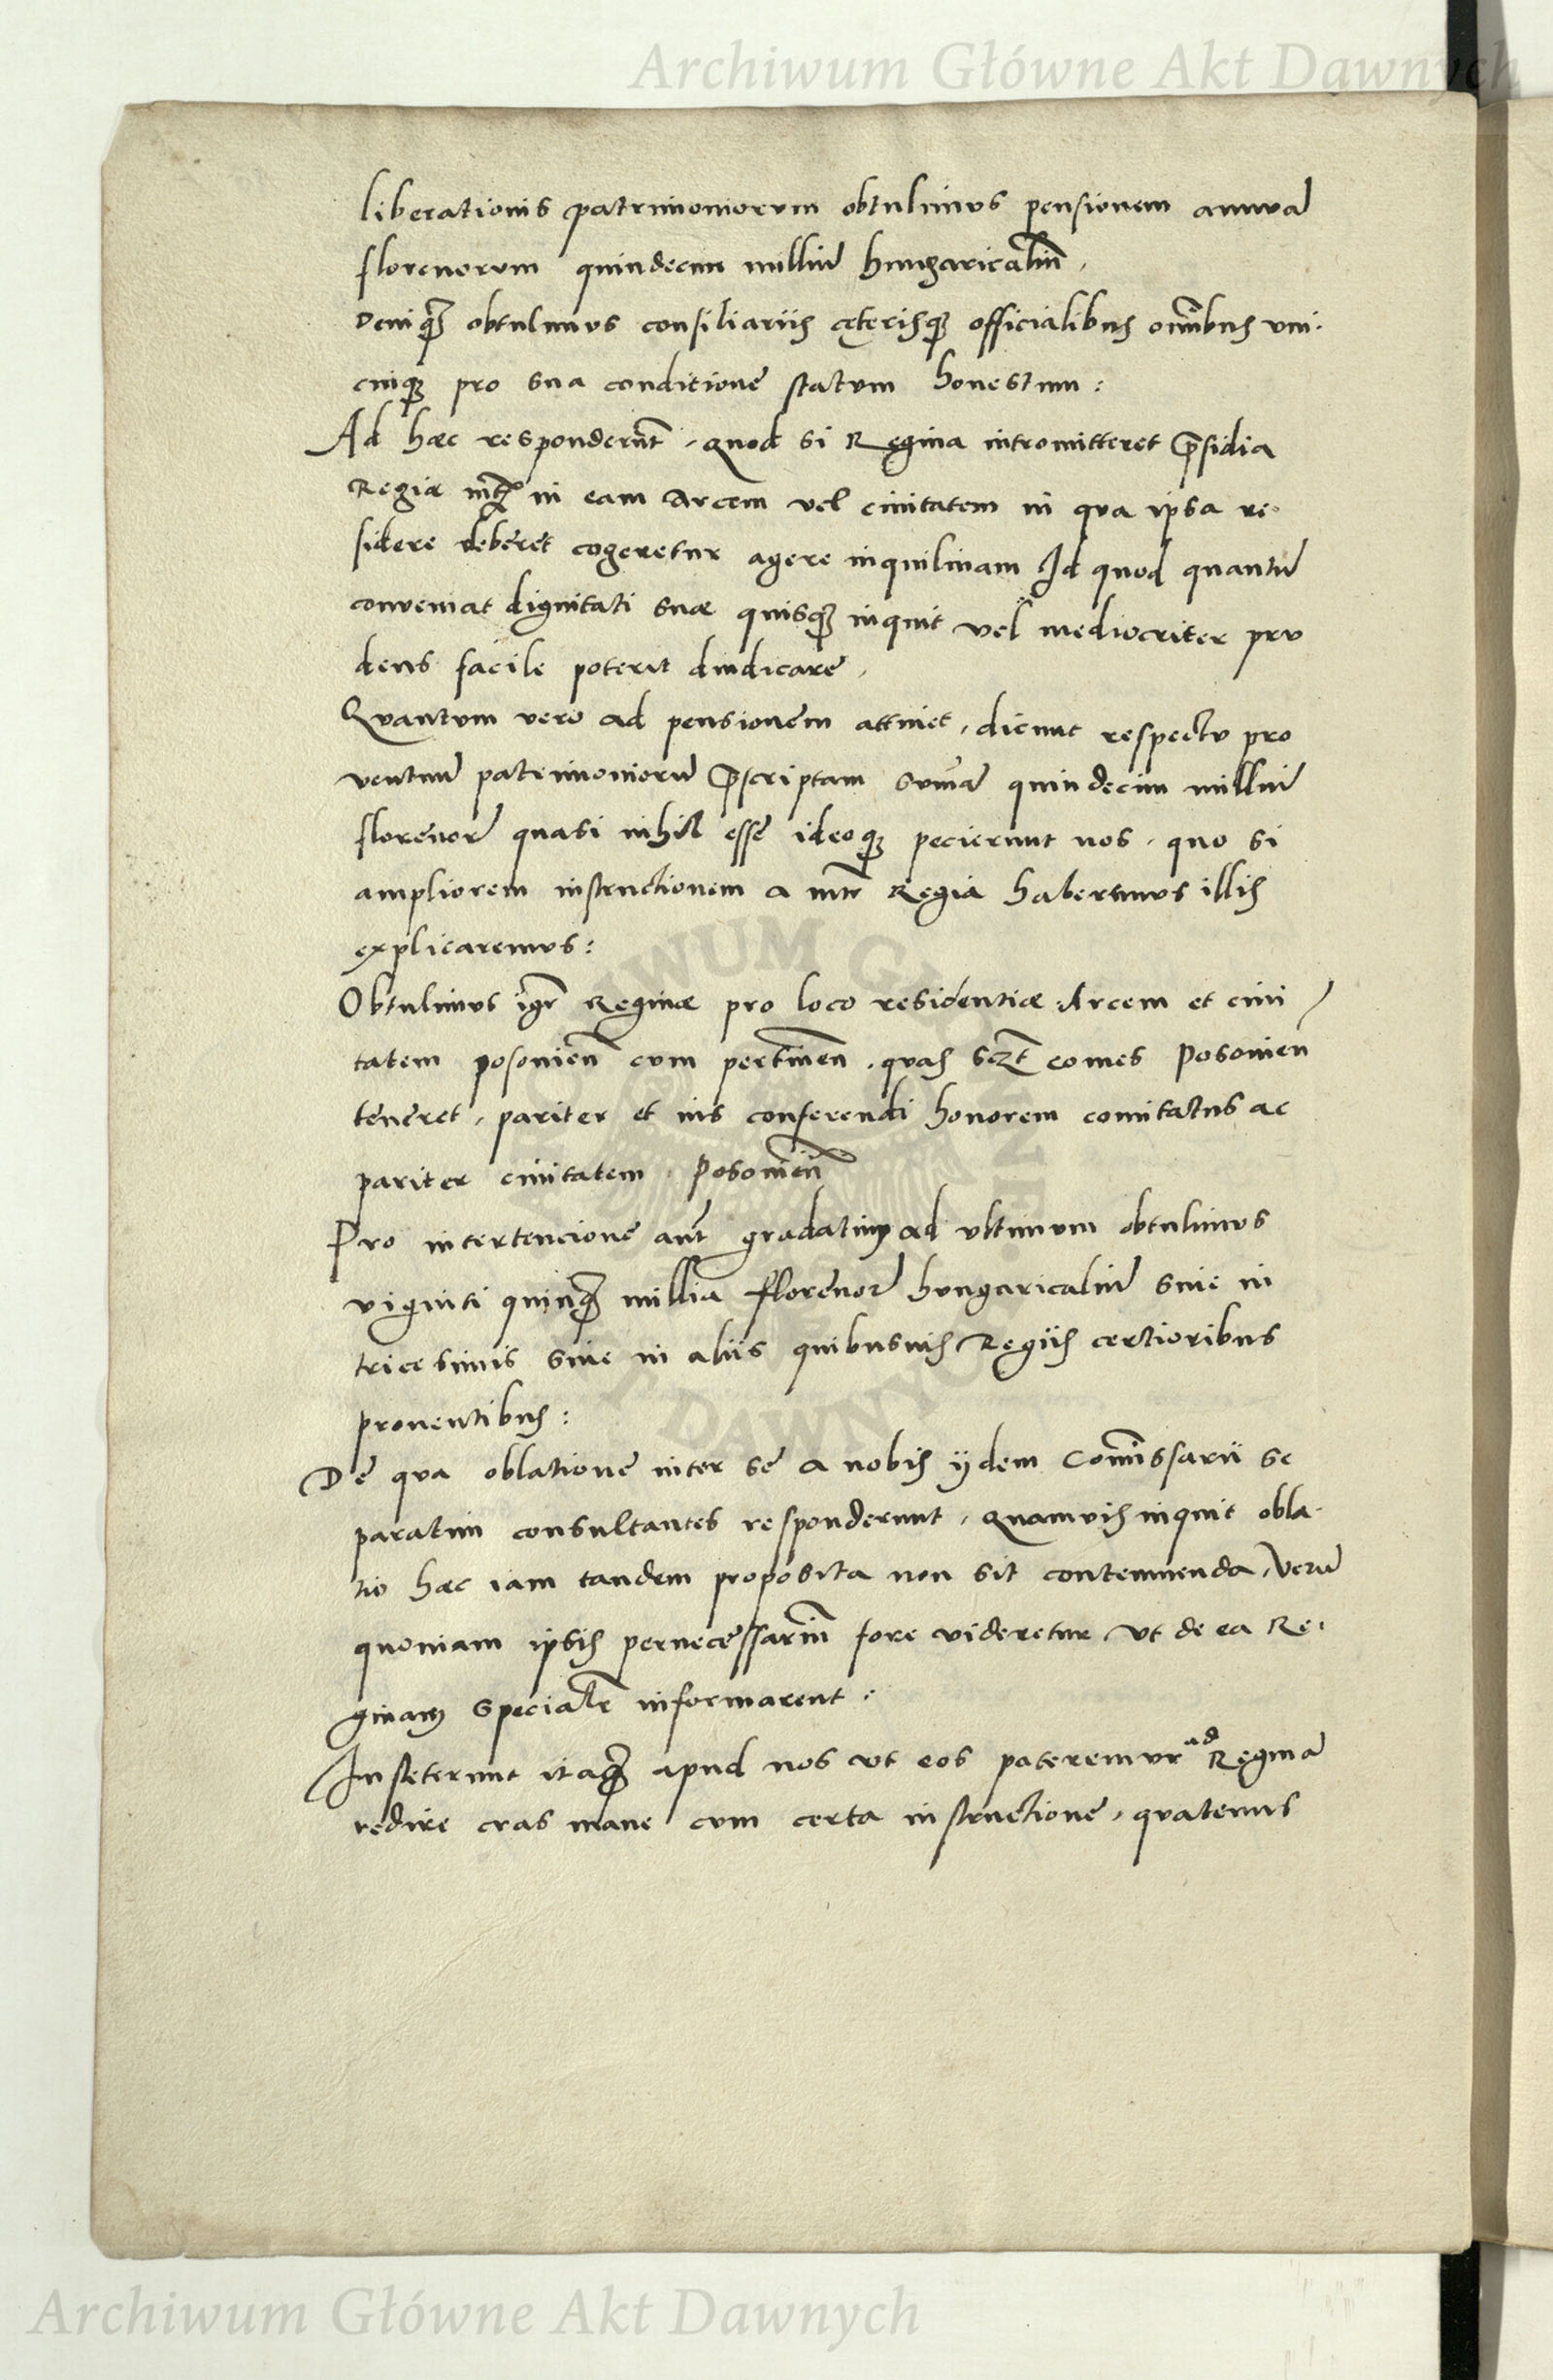 Archiwum Główne Akt Dawnych
liberationis patrimoniorvm obtulimvs pensionem annvā
florenorvm quindecim milliū hungaricaliū,
Deniqʒ obtulimvs consiliariis cęterisqʒ officialibus omībus vni-
cuiqʒ pro sua conditione statvm honestum:
Ad hæc responderūt, quod si Regina intromitteret p̄sidia
Regiæ mtis in eam Arcem vel ciuitatem in qva ipsa re-
sidere deberet cogeretur agere inquilinam Id quod quantū
conveniat dignitati suæ quisqʒ inquit vel mediocriter pru
dens facile poterit diiudicare,
Qvantvm vero ad pensionem attinet, dicunt respectv pro
ventuū patrimoniorū p̄scriptam svm̄ā quindecim milliū
florenor̄ quasi nihil esse ideoqʒ pecierunt nos, quo si
ampliorem instructionem a mte Regia haberemvs illis
explicaremvs:
Obtulimvs igr̄ Reginæ pro loco residentiæ Arcem et ciui
tatem posonien̄ cvm pertinen̄, qvas sczt̄ comes Posonien
teneret, pariter et ius conferendi honorem comitatus ac
pariter ciuitatem Posonien̄
Pro intertencione aut̄ gradatim ad vltimvm obtulimvs
viginti quinqʒ millia florenor̄ hvngaricaliū siue in
tricesimis siue in aliis quibusuis Regiis certioribus
prouentibus:
De qva oblatione inter se a nobis ijdem Com̄issarii se
paratim consultantes responderunt, quamvis inquit obla-
tio hæc iam tandem proposita non sit contemnenda, verū
quoniam ipsis pernecessariū fore videretur vt de ea Re-
ginam specialr̄ informarent:
Insteterunt itaqʒ apud nos vt eos pateremvr ad Reginā
redire cras mane cvm certa instructione, qvatenus
Archiwum Główne Akt Dawnych